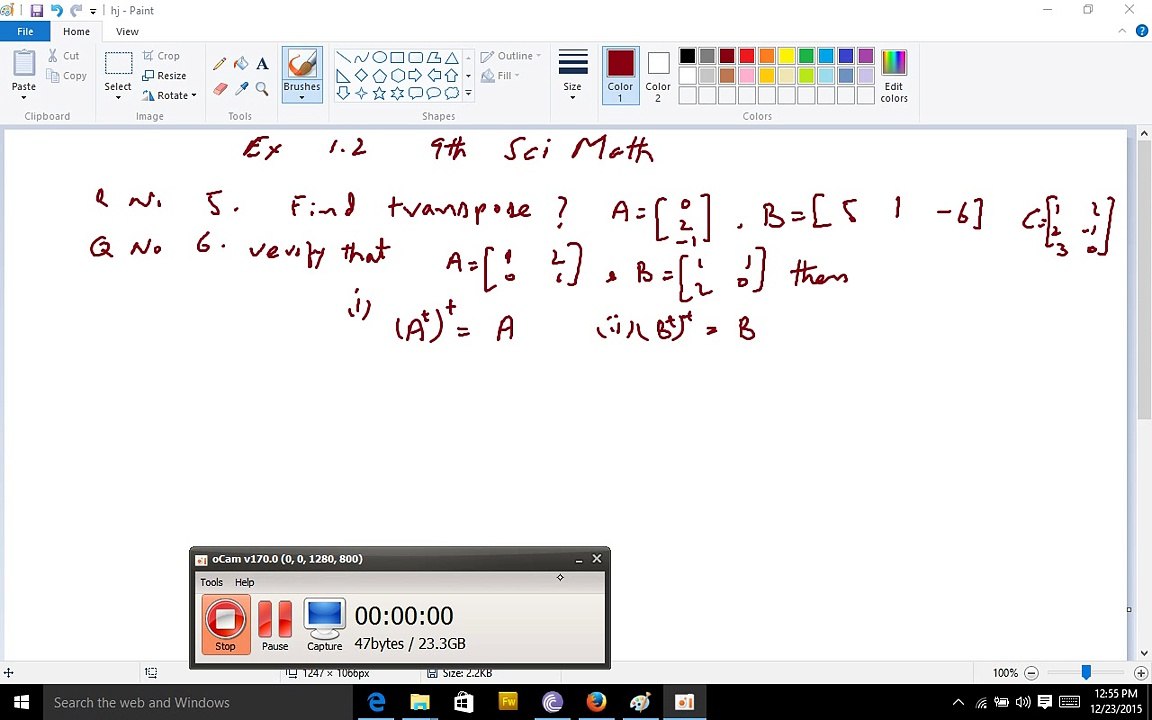 hj - Paint
File Home View
Cut Crop Outline
Copy Resize Fill
Paste Select Rotate Brushes Size Color 1 Color 2 Edit colors
Clipboard Image Tools Shapes Colors
Ex 1.2 9th Sci Math
Q No 5. Find transpose ? A=[0 2 -1] , B=[5 1 -6] C=[1 2 2 -1 3 0]
Q No 6. verify that A=[1 2 0 1] & B=[1 1 2 0] then
(i) (Aᵗ)ᵗ = A (ii) (Bᵗ)ᵗ = B
oCam v170.0 (0, 0, 1280, 800)
Tools Help
00:00:00
Stop Pause Capture 47bytes / 23.3GB
1247 × 1066px Size: 2.2KB 100%
Search the web and Windows
Fw
12:55 PM
12/23/2015